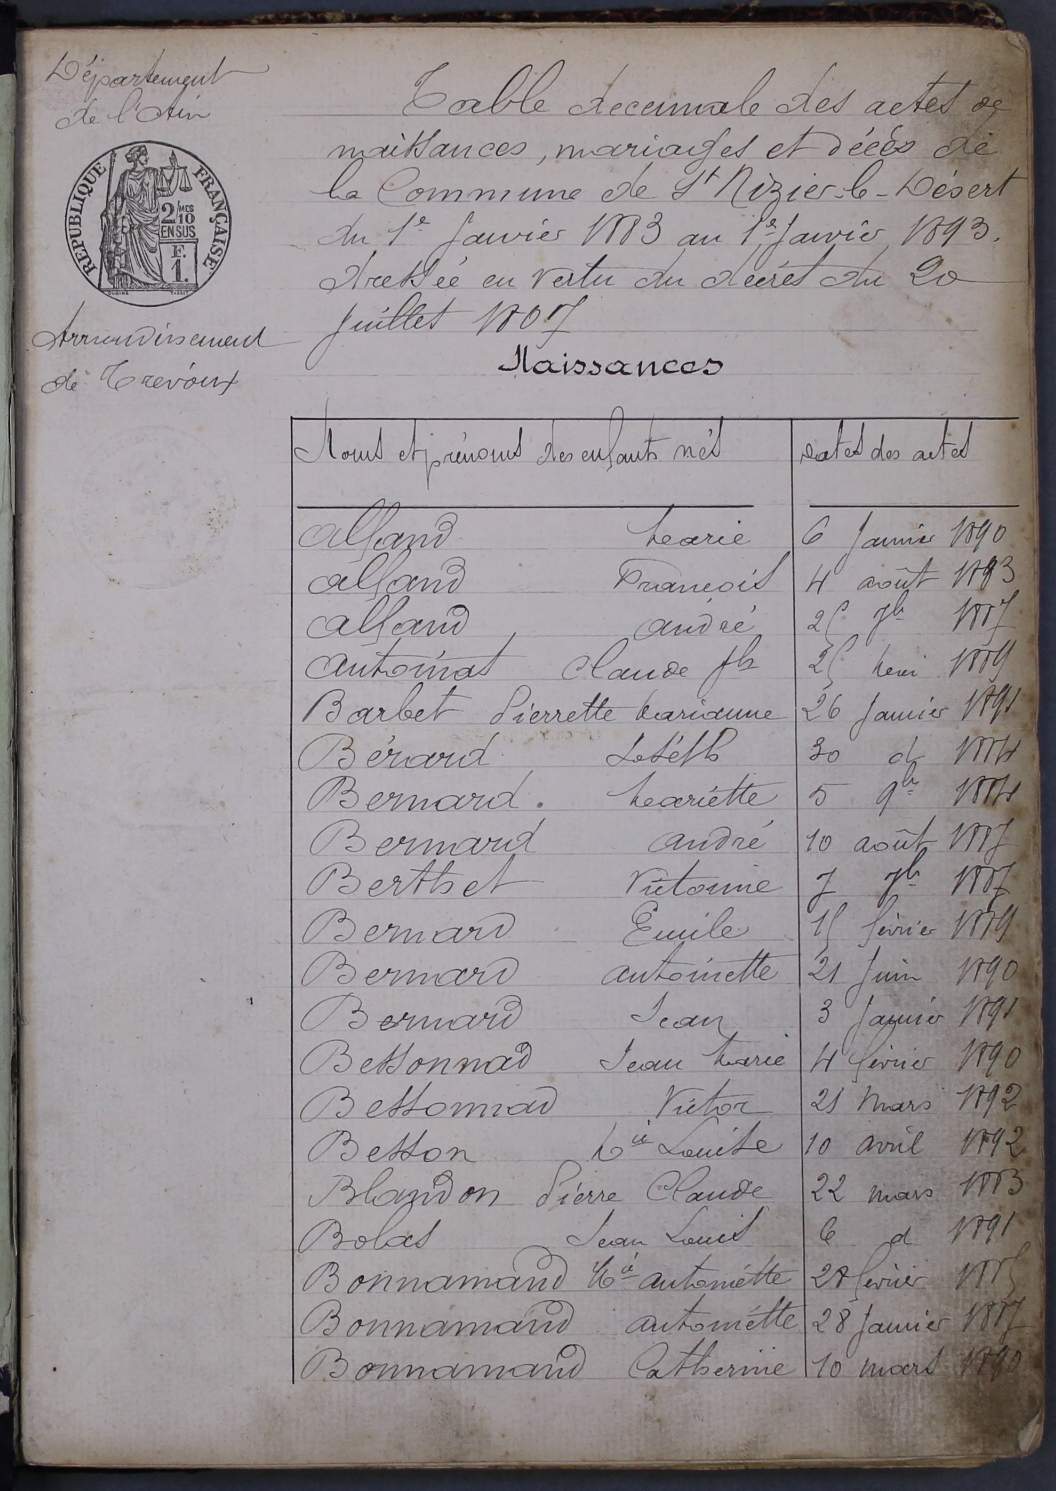 Département
de l'Ain
RÉPUBLIQUE FRANÇAISE
2/10 MES
EN SUS
F.
1
Arrondissement
de Trévoux
Table decennale des actes de
naissances, mariages et décès de
la Commune de St Nizier-le-Désert
du 1er Janvier 1883 au 1er Janvier 1893.
dressée en vertu du décret du 20
Juillet 1807
Naissances
Noms et prénoms des enfants nés dates des actes
Alland Marie 6 Janvier 1890
Alland François 4 août 1893
Alland André 25 7bre 1887
Antoinat Claude Jh 25 1889
Barbet Pierrette Marianne 26 Janvier 1891
Bérard Joséph 30 d 1884
Bernard. Mariette 5 9bre 1884
Bernard André 10 août 1887
Berthet Victorine 7 7bre 1887
Bernard Emile 15 février 1889
Bernard Antoinette 21 Juin 1890
Bernard Jean 3 Janvier 1891
Bessonnad Jean Marie 4 février 1890
Bessonnad Victor 21 Mars 1892
Besson Mie Louise 10 avril 1892
Blandon Pierre Claude 22 mars 1883
Bolas Jean Louis 6 d 1891
Bonnamand Mie Antoinétte 28 février 1885
Bonnamand Antoinétte 28 Janvier 1887
Bonnamand Catherine 10 mars 1890